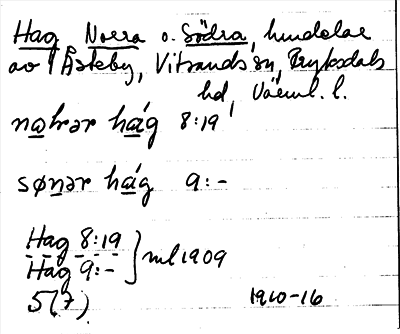 Hag, Norra o. Södra, hundelar
av Åsteby, Vitsands sn, Fryksdals
hd, Värml. l.
nab̶rər hág 8:19
sønər hág 9:-
Hag 8:19
Hag 9:- } ml 1909
5(7) 1910-16